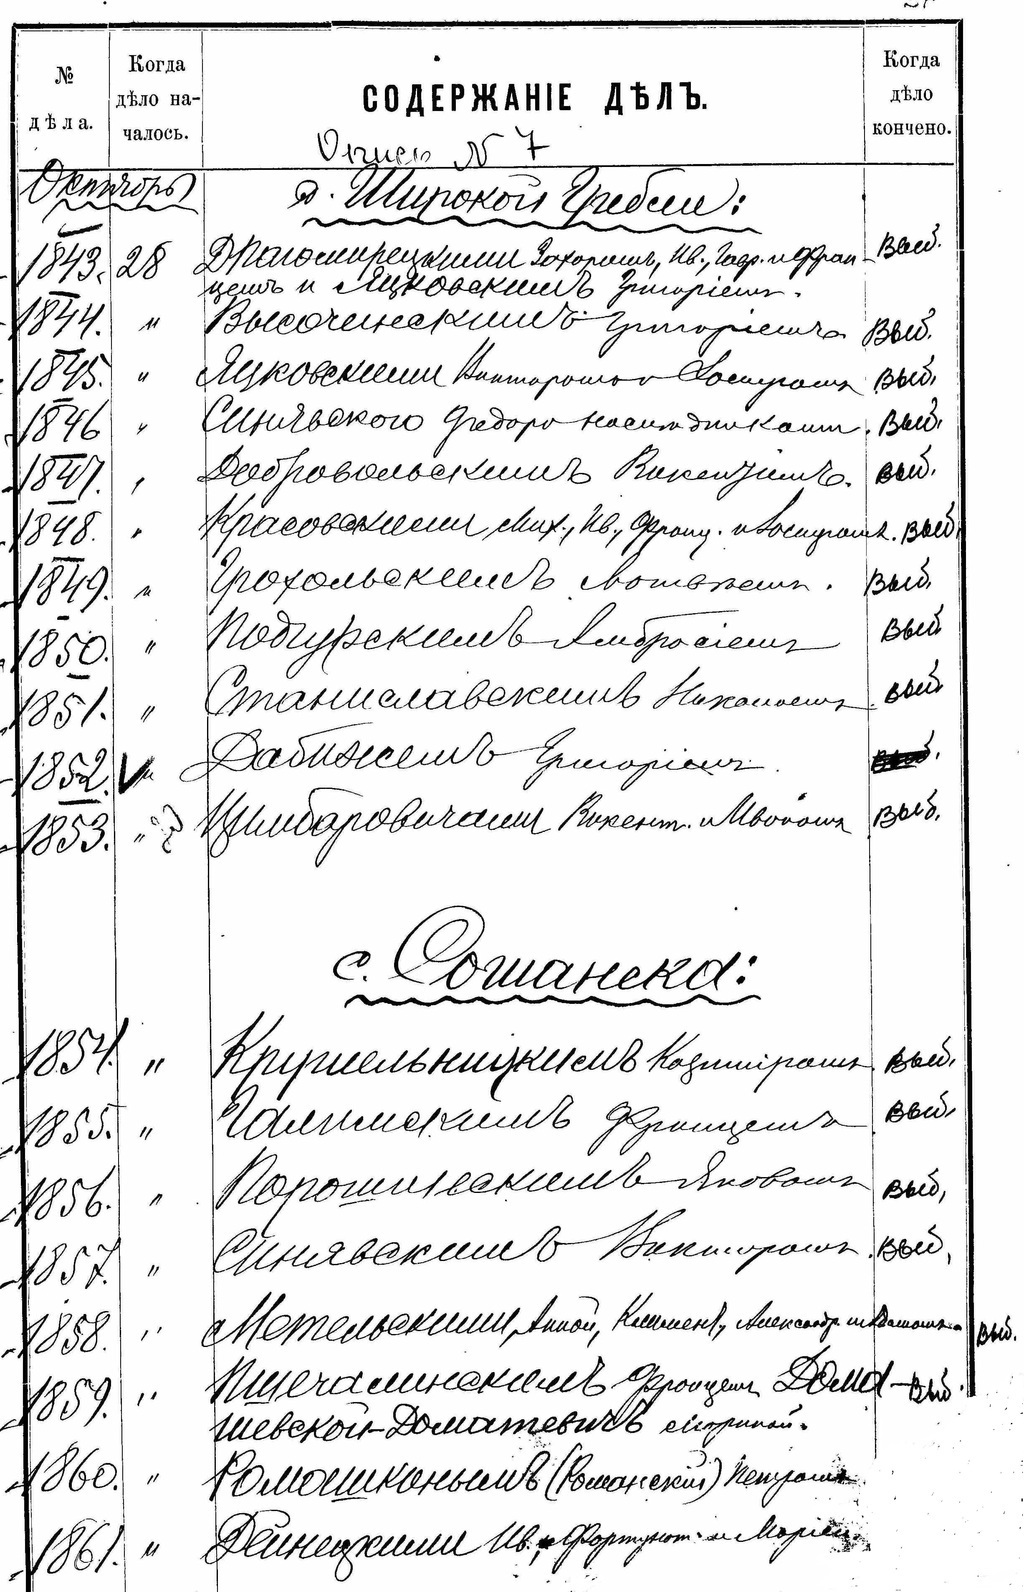 № дѣла. Когда дѣло началось. СОДЕРЖАНІЕ ДѢЛЪ. Когда дѣло кончено.
Опись N 7
Октябрь д. Широкой Гребли:
1843. 28 Драгомирецкими Захаромъ, Ив., и Фран- Выб.
цемъ и Яцковскимъ Григоріемъ.
1844. " Высочинскимъ Григоріемъ Выб.
1845. " Яцковскими Викторомъ и Выб.
1846 " Синявского Федора наследниками. Выб.
1847. " Добровольскимъ Викентіемъ. Выб.
1848. " Красовскими Мих., Ив., Франц. и Выб.
1849. " Грохольскимъ Матвѣемъ. Выб.
1850. " Подгурскимъ Амбросіемъ Выб.
1851. " Станиславскимъ Николаемъ Выб.
1852. " Дабижемъ Григоріемъ.
1853. " Цимбаровичами Викент. и Иваномъ Выб.
с. Сошанска:
1854. " Крушельницкимъ Казиміромъ Выб.
1855. " Галимскимъ Францемъ Выб.
1856. " Порошинскимъ Яковомъ Выб.
1857. " Синявскимъ Викторомъ. Выб.
1858. " Метельскими Анной, Климент., Александр. и Выб.
1859. " Пшечаминскимъ Францемъ Дома- Выб.
шевской-Доматевичъ
1860. " Ромашканымъ (Романский) Петромъ
1861. " Дейнецкими Ив. Фортунат. и Маріей.